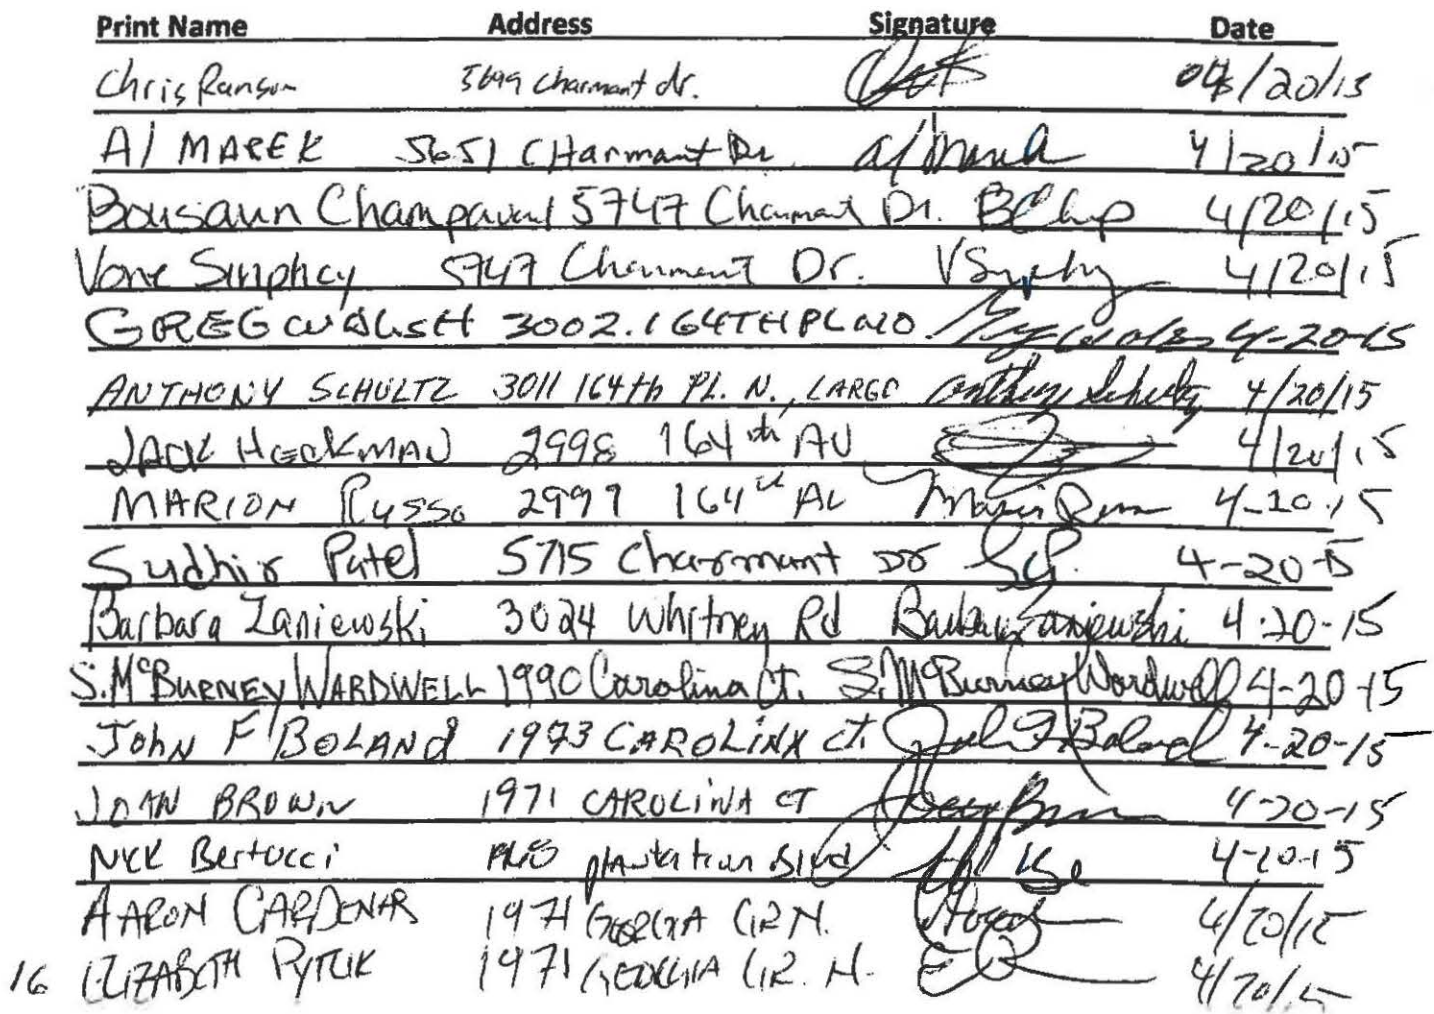 Print Name Address Signature Date
Chris Ransom 5699 Charmant dr. 04/20/15
Al MAREK 5651 CHarmant Dr Al Marek 4/20/15
Bousaun Champavanl 5747 Charmant Dr. BChp 4/20/15
Vone Sinphay 5747 Charmant Dr. 4/20/15
GREG WALSH 3002.164TH PL NO. 4-20-15
ANTHONY SCHULTZ 3011 164th PL. N., LARGO Anthony Schultz 4/20/15
JACK HECKMAN 2998 164th AV 4/20/15
MARION RUSSO 2999 164th AV Marion Russo 4-20-15
Sudhir Patel 5715 Charmant Dr S.P. 4-20-15
Barbara Zaniewski 3024 Whitney Rd Barbara Zaniewski 4-20-15
S. McBURNEY WARDWELL 1990 Carolina Ct. S. McBurney Wardwell 4-20-15
JOHN F BOLANd 1973 CAROLINA CT. John F Boland 4-20-15
JOAN BROWN 1971 CAROLINA CT Brown 4-20-15
NICK Bertucci plantation Blvd 4-20-15
AARON CARDENAS 1971 GEORGIA CIR N. 4/20/15
16 ELIZABETH PYTLIK 1971 GEORGIA CIR. N. 4/20/15